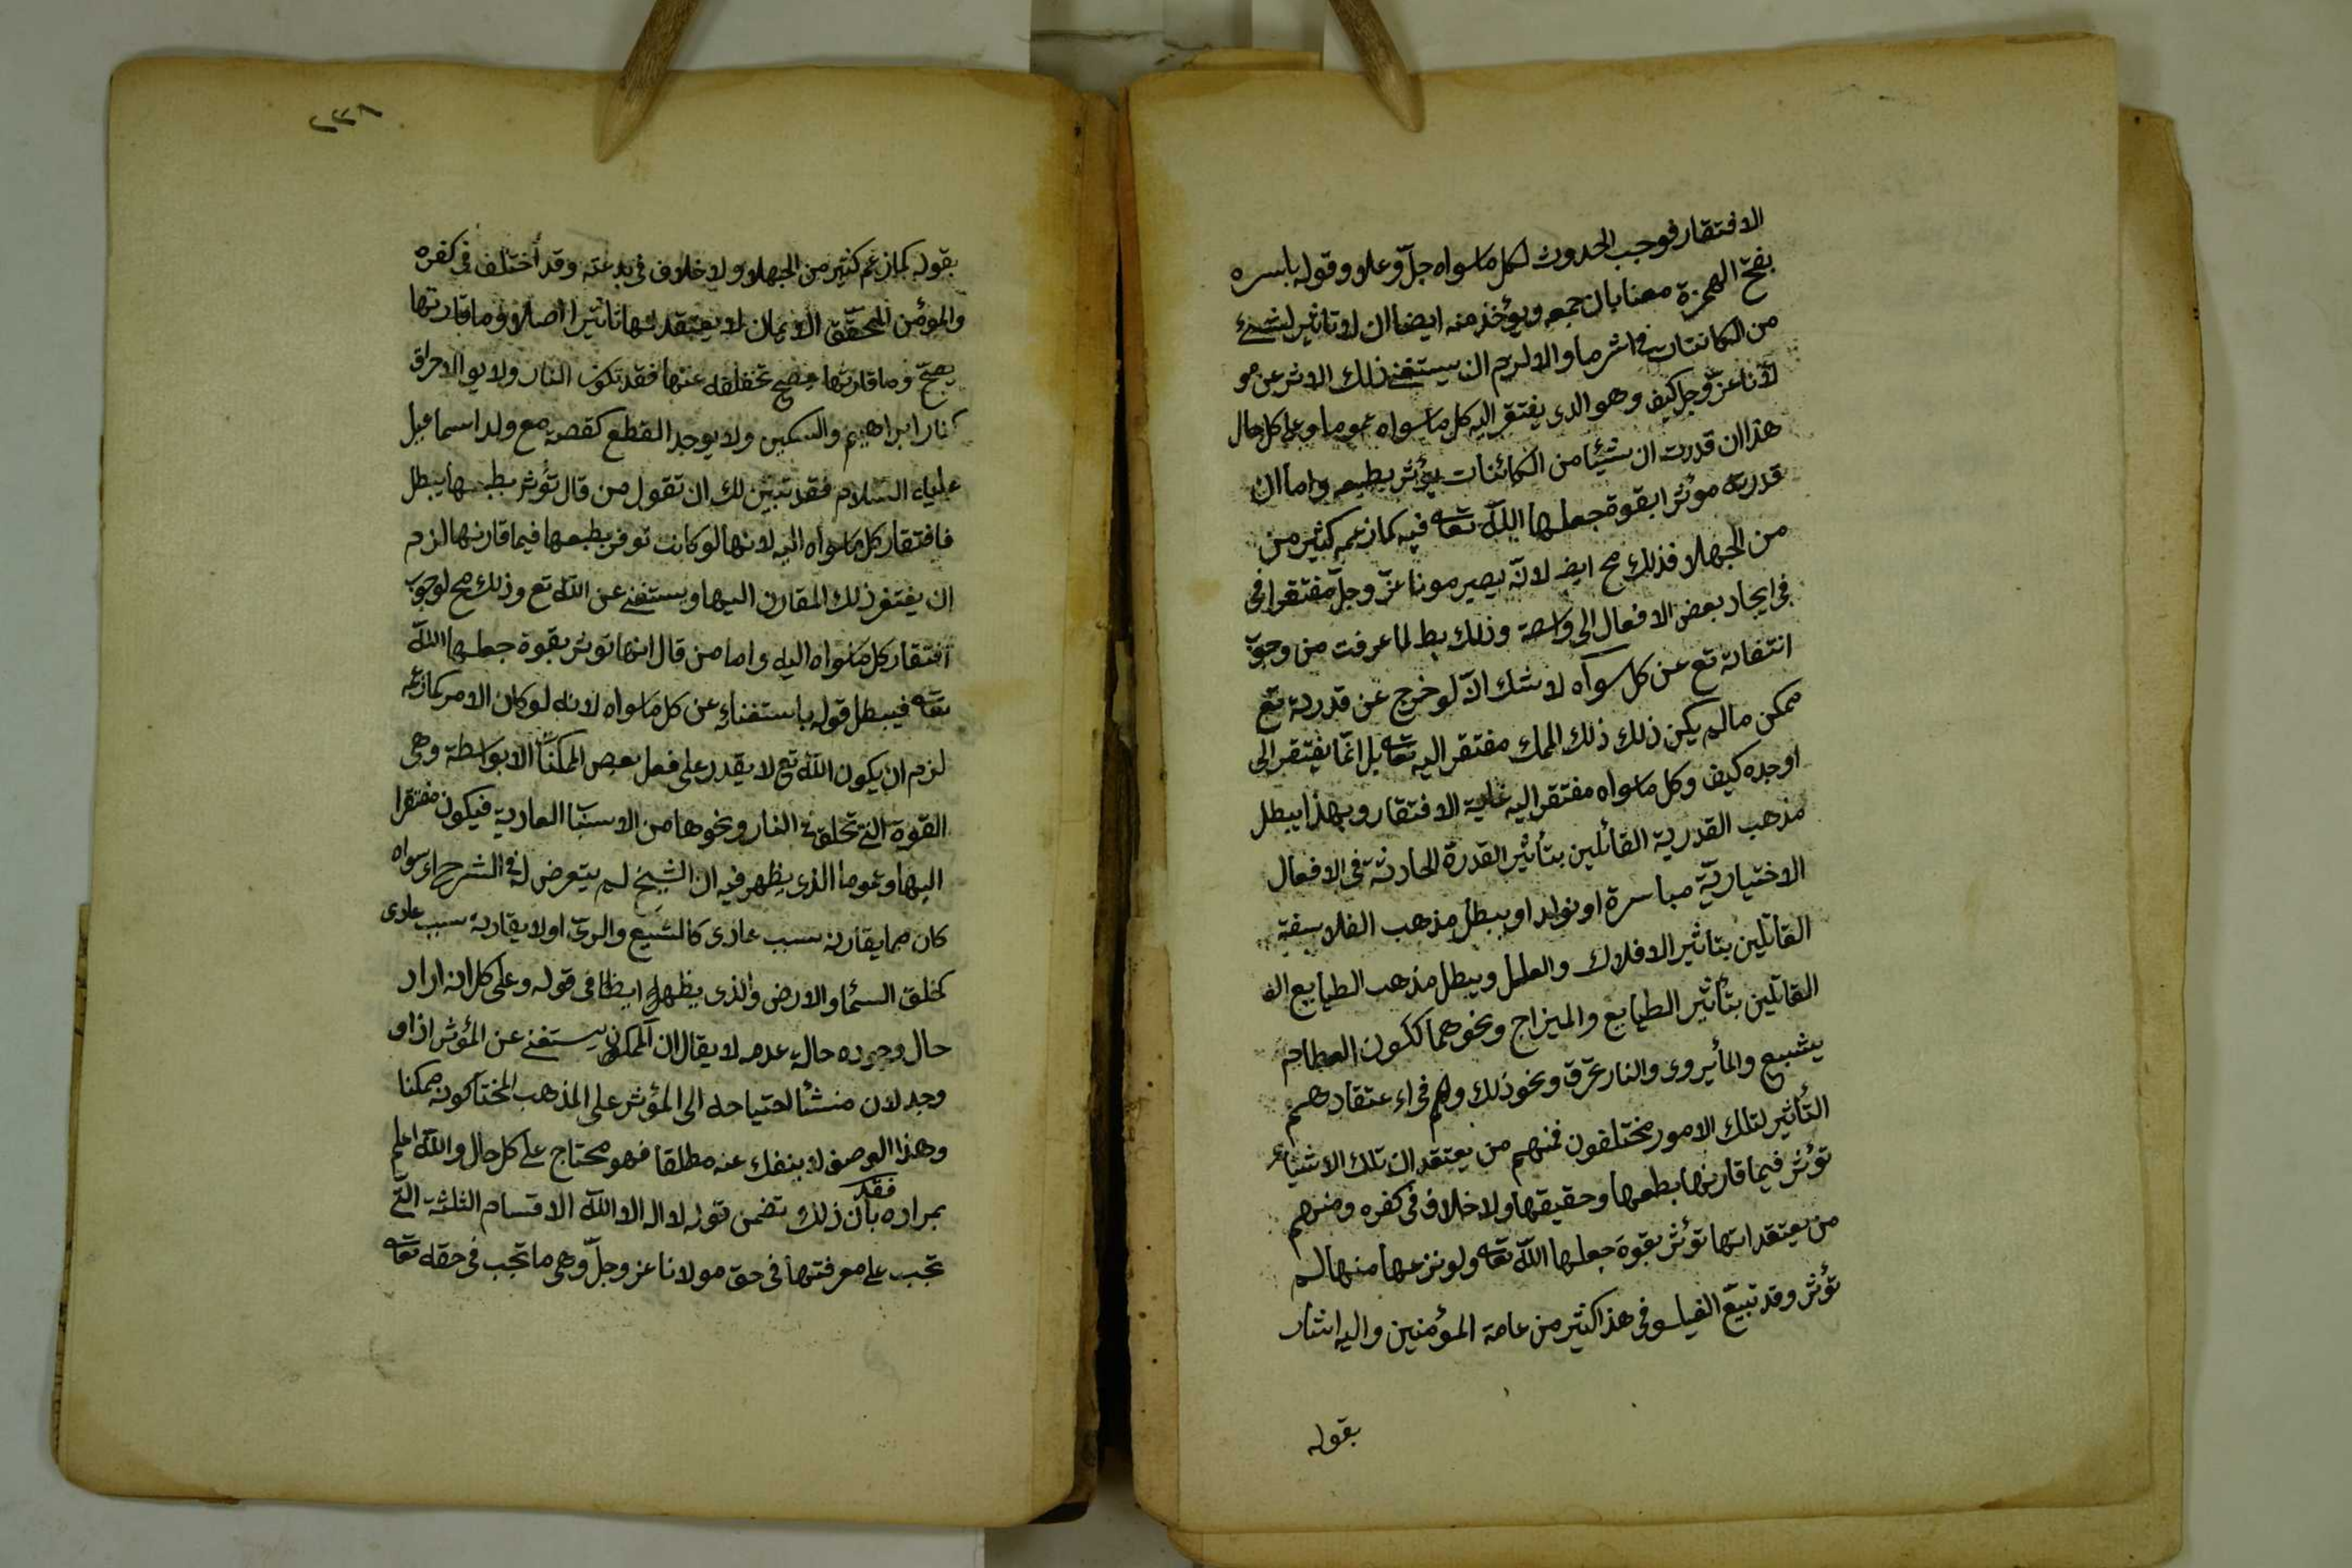 الافتقار فوجب الحدوث لكل ماسواه جلّ وعلا وقوله باسره
بفتح الهمزة معنا بان جميعه ويؤخذ منه ايضا ان لا تاثير لشئ
من الكائنتات في اثر ما والا لزم ان يستغني ذلك الاثر عن مو
لانا عزّ وجل كيف وهو الذي يفتقر اليه كل ماسواه عموما وعلى كل حال
هذا ان قدرت ان شيئا من الكائنات يؤثر بطبعه واما ان
قدرته موثرا بقوة جعلها اللّه تعا فيه كما زعمه كثير من
من الجهلا فذلك مح ايضا لانّه يصير مونا عزّ وجلّ مفتقرا في
في ايجاد بعض الافعال الى واسطة وذلك بط لما عرفت من وجوب
انتفائه تع عن كل سواه لا شك انّه لو خرج عن قدرته تع
ممكن ما لم يكن ذلك ذلك الممك مفتقر اليه تعا بل انّما يفتقر الى
اوجده كيف وكل ماسواه مفتقر اليه غاية الافتقار وبهذا يبطل
مذهب القدرية القائلين بتأثير القدرة الحادثة في الافعال
الاختياريّة مباسرة او تولد او يبطل مذهب الفلاسفة
القائلين بتاثير الافلاك والعلل ويبطل مذهب الطبايع الق
القائلين بتأثير الطبايع والميزاج ونحوهما ككون الطعام
يشبع والمأ يروى والنار تحرّق ونحو ذلك وهم في اعتقادهم
التأثير لتلك الامور مختلفون فمنهم من يعتقد ان تلك الاشياء
تؤثر فيما قارنها بطبعها وحقيقها ولا خلاف في كفره ومنهم
من يعتقد انها تؤثر بقوة جعلها اللّه تعا ولو نزعها منها لم
تؤثر وقد تبيع الفيلسوفى هذا كثير من عامة المؤمنين واليه اشار
بقوله
٢٣٨
بقوله كما زعم كثير من الجهلا ولا خلاف في بدعته وقد أختلف في كفره
والمؤمن المحقّق الايمان لا يعتقد لها تاثيرا اصلا وما قارنتها
يصح وما قارنتها يصح تخفلفه عنها فقد تكون النار ولا يو الاحراق
كنار ابراهيم والسكين ولا يوجد القطع كقصته مع ولد اسماعيل
علياه السّلام فقد تبيّن لك ان تقول من قال تؤثر بطبعها يبطل
فافتقار كل ماسواه اليه لانها لو كانت توفر بطبعها فيما قارنها لزم
ان يفتقر ذلك المقارن اليها ويستغني عن اللّه تع وذلك مح لوجوب
افتقار كل ماسواه اليه واما من قال انها توثر بقوة جعلها اللّه
تعا فيبطل قوله باستغنائه عن كل ماسواه لانه لو كان الامر كما زعمه
لزم ان يكون اللّه تع لا يقدر على فعل بعض الممكنات الا بواسطة وهي
القوة التي تخلق في النار ونحوها من الاسباب العادية فيكون مفتقرا
اليها وعوما الذي يظهر فيه ان الشيخ لم يتعرض له في الشرح سواء
كان مما يقارنه سبب عادى كالشبع والرىّ اولا يقاربه سبب عادى
كخلق السّما والارض والذي يظهر ايظا في قوله وعلى كل انه اراد
حال وجوده حال عدمه لا يقال ان الممكن يستغني عن المؤثر اذا و
وجد لان منشأ احتياجه الى المؤثر على المذهب المختا كونه ممكنا
وهذا الوصف لا ينفك عنه مطلقا فهو محتاج على كل حال واللّه اعلم
بمراده فقد بان ذلك تضمن قوله لا اله الا اللّه الاقسام الثلثة التي
تجب على معرفتها في حق مولانا عز وجلّ وهي ما تجب في حقه تعا